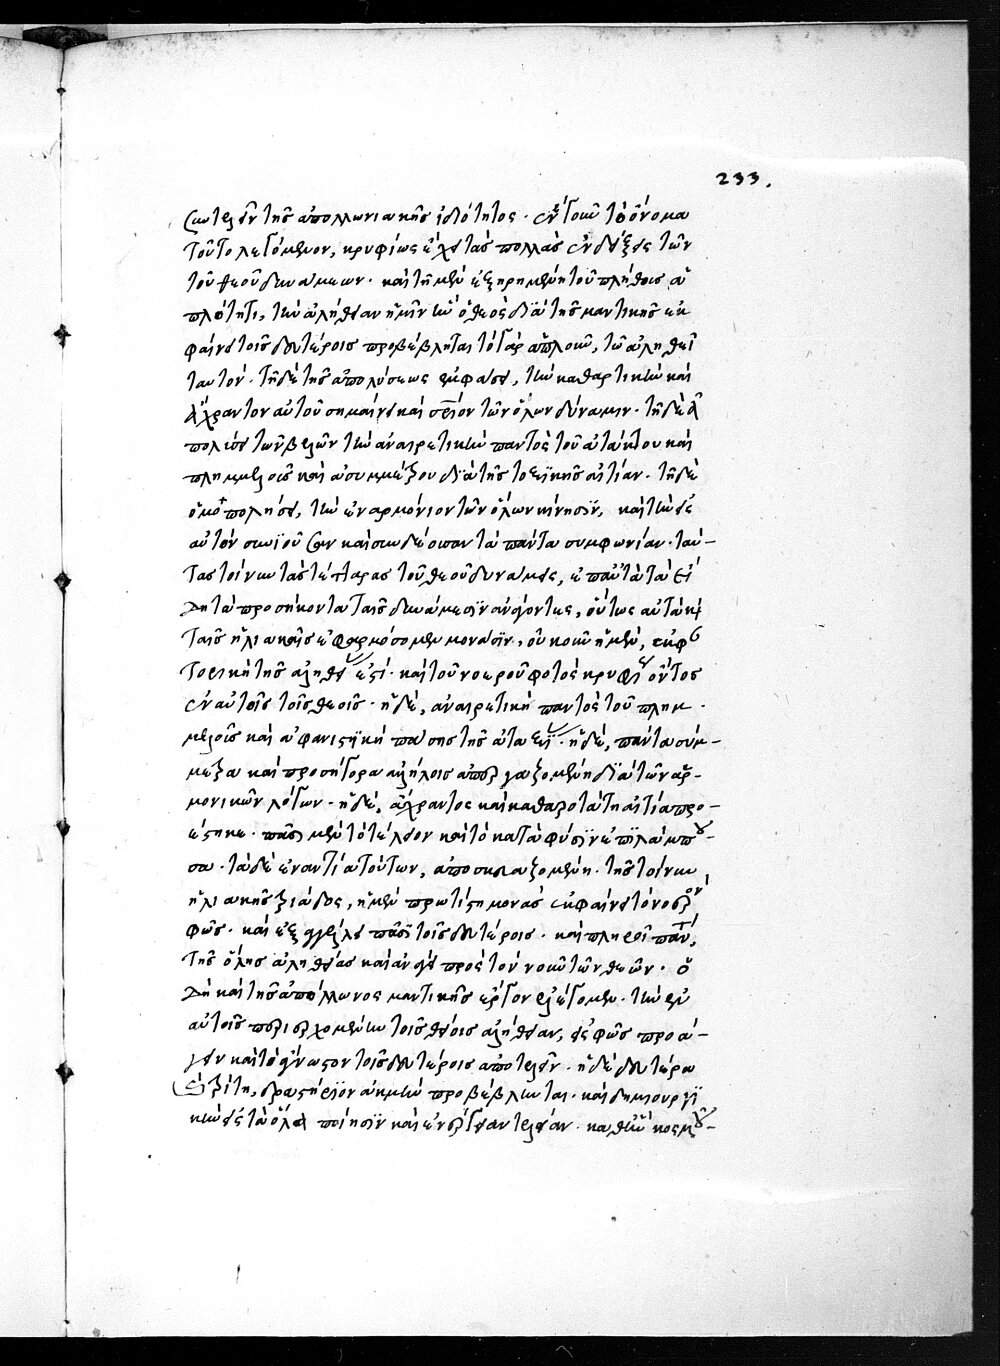 233.
συντελεῖν τῆς ἀπολλωνιακῆς ἰδιότητος. ἓν γοῦν τὸ ὄνομα
τοῦτο λεγόμενον, κρυφίως ἔχει τὰς πολλὰς ἐνδείξεις τῶν
τοῦ θεοῦ δυνάμεων. καὶ τῇ μὲν ἐξῃρημένῃ τοῦ πλήθους ἁ
πλότητι, τὴν ἀλήθειαν ἡμῖν ἣν ὁ θεὸς διὰ τῆς μαντικῆς ἐκ
φαίνει τοῖς δευτέροις προβέβληται τὸ γὰρ ἁπλοῦν, τῷ ἀληθεῖ
ταυτόν. τῇ δὲ τῆς ἀπολύσεως ἐμφάσει, τὴν καθαρτικὴν καὶ
ἄχραντον αὐτοῦ σημαίνει καὶ σωτήριον τῶν ὅλων δύναμιν. τῇ δὲ ἀ
πολύσει τῶν βελῶν τὴν ἀναιρετικὴν παντὸς τοῦ ἀτάκτου καὶ
πλημμελοῦς καὶ ἀσυμμέτρου διὰ τῆς τοξικῆς αἰτίαν. τῇ δὲ
ὁμοπολήσει, τὴν ἐναρμόνιον τῶν ὅλων κίνησιν, καὶ τὴν εἰς
αὐτὸν συνιοῦσαν καὶ συνδέουσαν τὰ πάντα συμφωνίαν. ταύ-
τας τοίνυν τὰς τέτταρας τοῦ θεοῦ δυνάμεις, ἐπ' αὐτὰ τὰ εἴ
δη τὰ προσήκοντα ταῖς δυνάμεσιν ἀνάγοντες, οὕτως αὐτὰ καὶ
ταῖς ἡλιακαῖς ἐφαρμόσομεν μονάσιν. οὐκοῦν ἡ μὲν, ἐκφαν
τορικὴ τῆς ἀληθείας ἐστί. καὶ τοῦ νοεροῦ φωτὸς κρυφίου ὄντος
ἐν αὐτοῖς τοῖς θεοῖς. ἡ δέ, ἀναιρετικὴ παντὸς τοῦ πλημ
μελοῦς καὶ ἀφανιστικὴ πάσης τῆς ἀταξίας. ἡ δέ, πάντα σύμ-
μετρα καὶ προσήγορα ἀλλήλοις ἀπεργαζομένη διὰ τῶν ἁρ-
μονικῶν λόγων. ἡ δέ, ἀχράντος καὶ καθαρωτάτη αἰτία προ-
έστηκε. πᾶσι μὲν τὸ τέλειον καὶ τὸ κατὰ φύσιν ἐπιλάμπου-
σα. τὰ δὲ ἐναντία τούτων, ἀποσκευαζομένη. τῆς τοίνυν
ἡλιακῆς τριάδος, ἡ μὲν πρωτίστη μονὰς ἐκφαίνει τὸ νοερὸν
φῶς. καὶ ἐξαγγέλλει πᾶσι τοῖς δευτέροις. καὶ πληροῖ πάντα
τῆς ὅλης ἀληθείας καὶ ἀνάγει πρὸς τὸν νοῦν τῶν θεῶν. ὃ
δὴ καὶ τῆς ἀπόλλωνος μαντικῆς ἔργον ἐλέγομεν. τὴν ἐν
αὐτοῖς περιεχομένην τοῖς θείοις ἀλήθειαν, εἰς φῶς προά-
γειν καὶ τὸ ἄγνωστον τοῖς δευτέροις ἀποτελεῖν. ἡ δὲ δευτέρα
ἢ τρίτη, δραστήριον ἀκμὴν προβέβληται. καὶ δημιουργι
κὴν εἰς τὰ ὅλα ποίησιν καὶ ἐνέργειαν τελείαν. καθ' ἣν κοσμού-